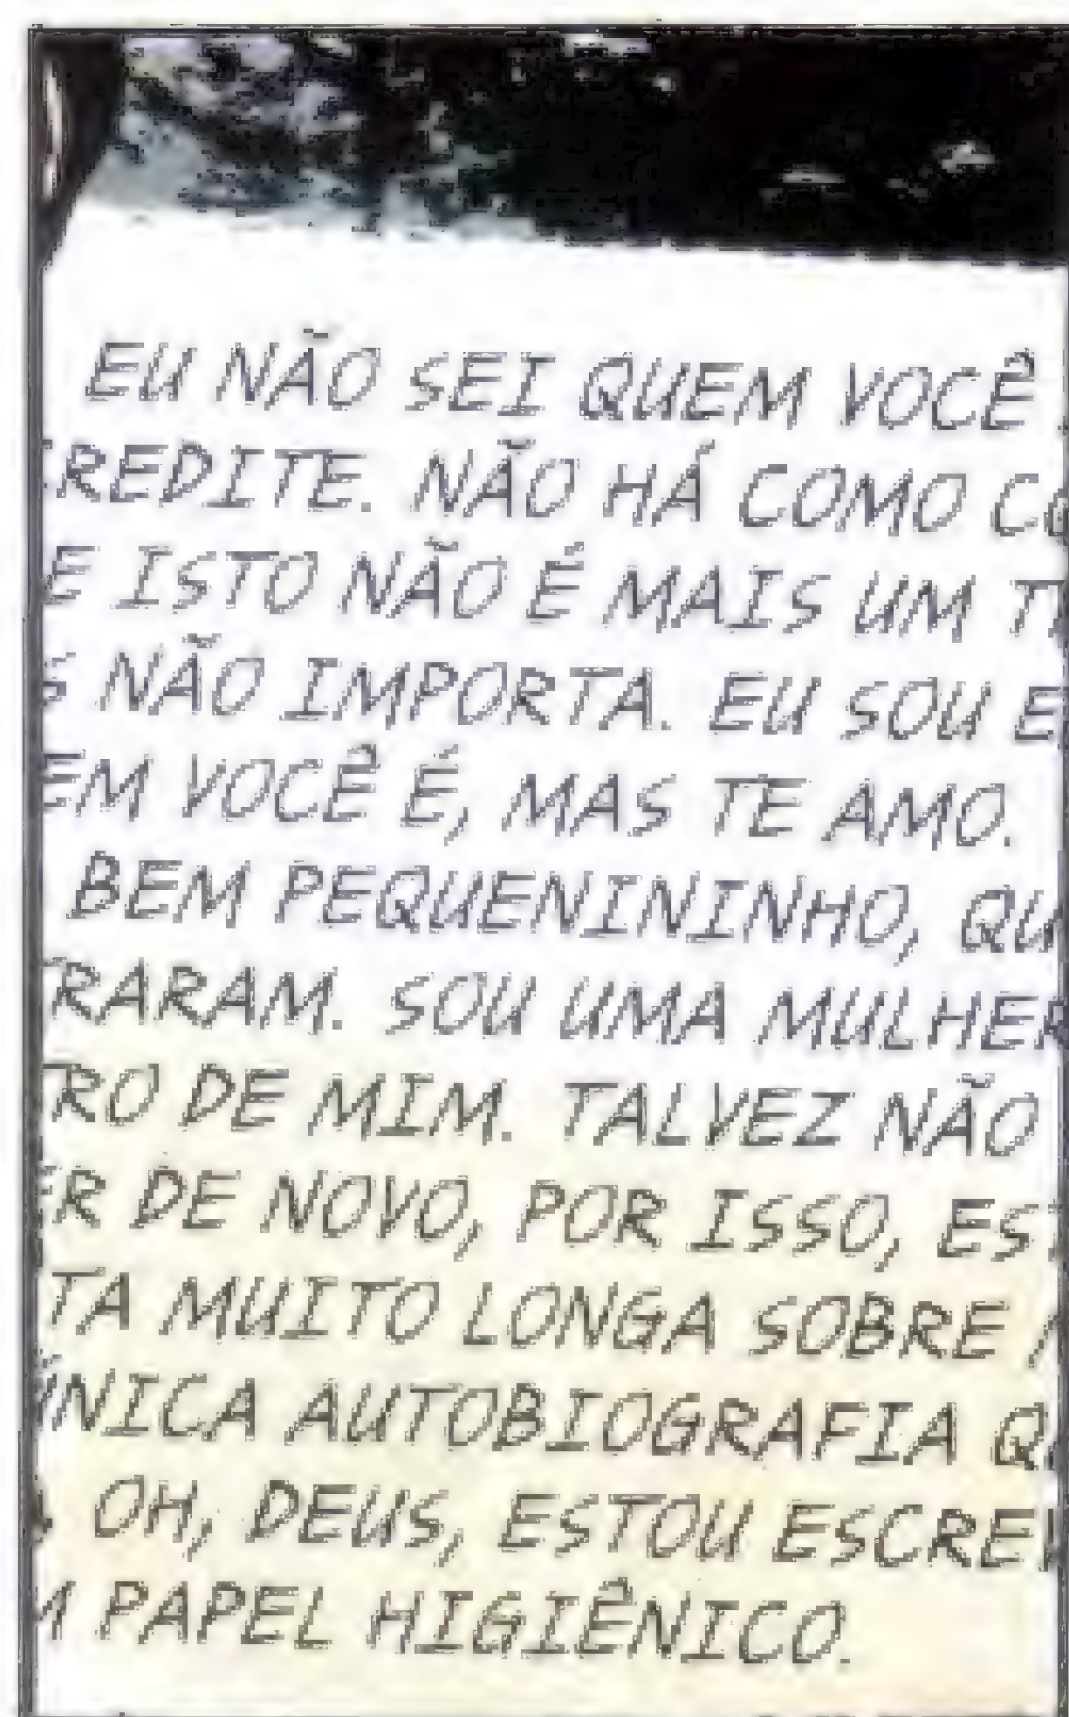 EU NÃO SEI QUEM VOCÊ
REDITE. NÃO HÁ COMO CO
E ISTO NÃO É MAIS UM T
S NÃO IMPORTA. EU SOU E
EM VOCÊ É, MAS TE AMO.
BEM PEQUENININHO, QU
RARAM. SOU UMA MULHER
TRO DE MIM. TALVEZ NÃO
ER DE NOVO, POR ISSO, ES
TA MUITO LONGA SOBRE
ÚNICA AUTOBIOGRAFIA Q
OH, DEUS, ESTOU ESCRE
M PAPEL HIGIÊNICO.